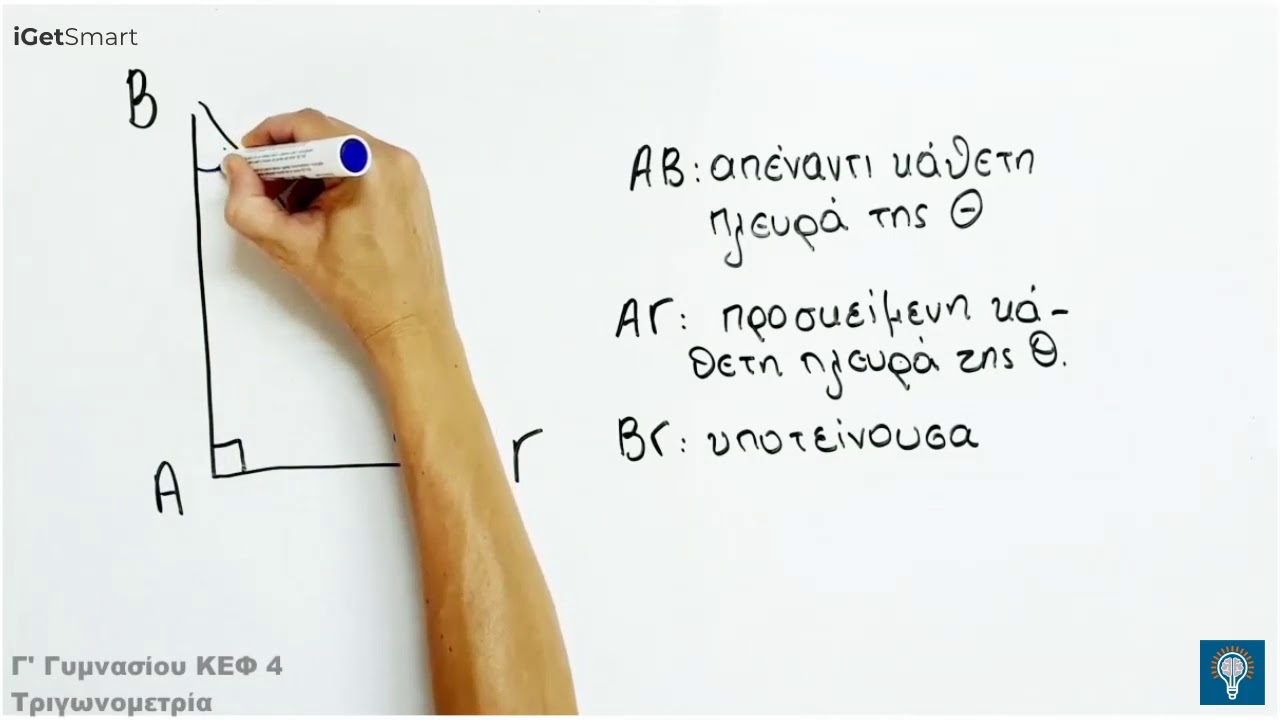 iGetSmart
Β
ΑΒ: απέναντι κάθετη
πλευρά της Θ
ΑΓ: προσκείμενη κά-
θετη πλευρά της Θ.
ΒΓ: υποτείνουσα
Γ
Α
Γ' Γυμνασίου ΚΕΦ 4
Τριγωνομετρία